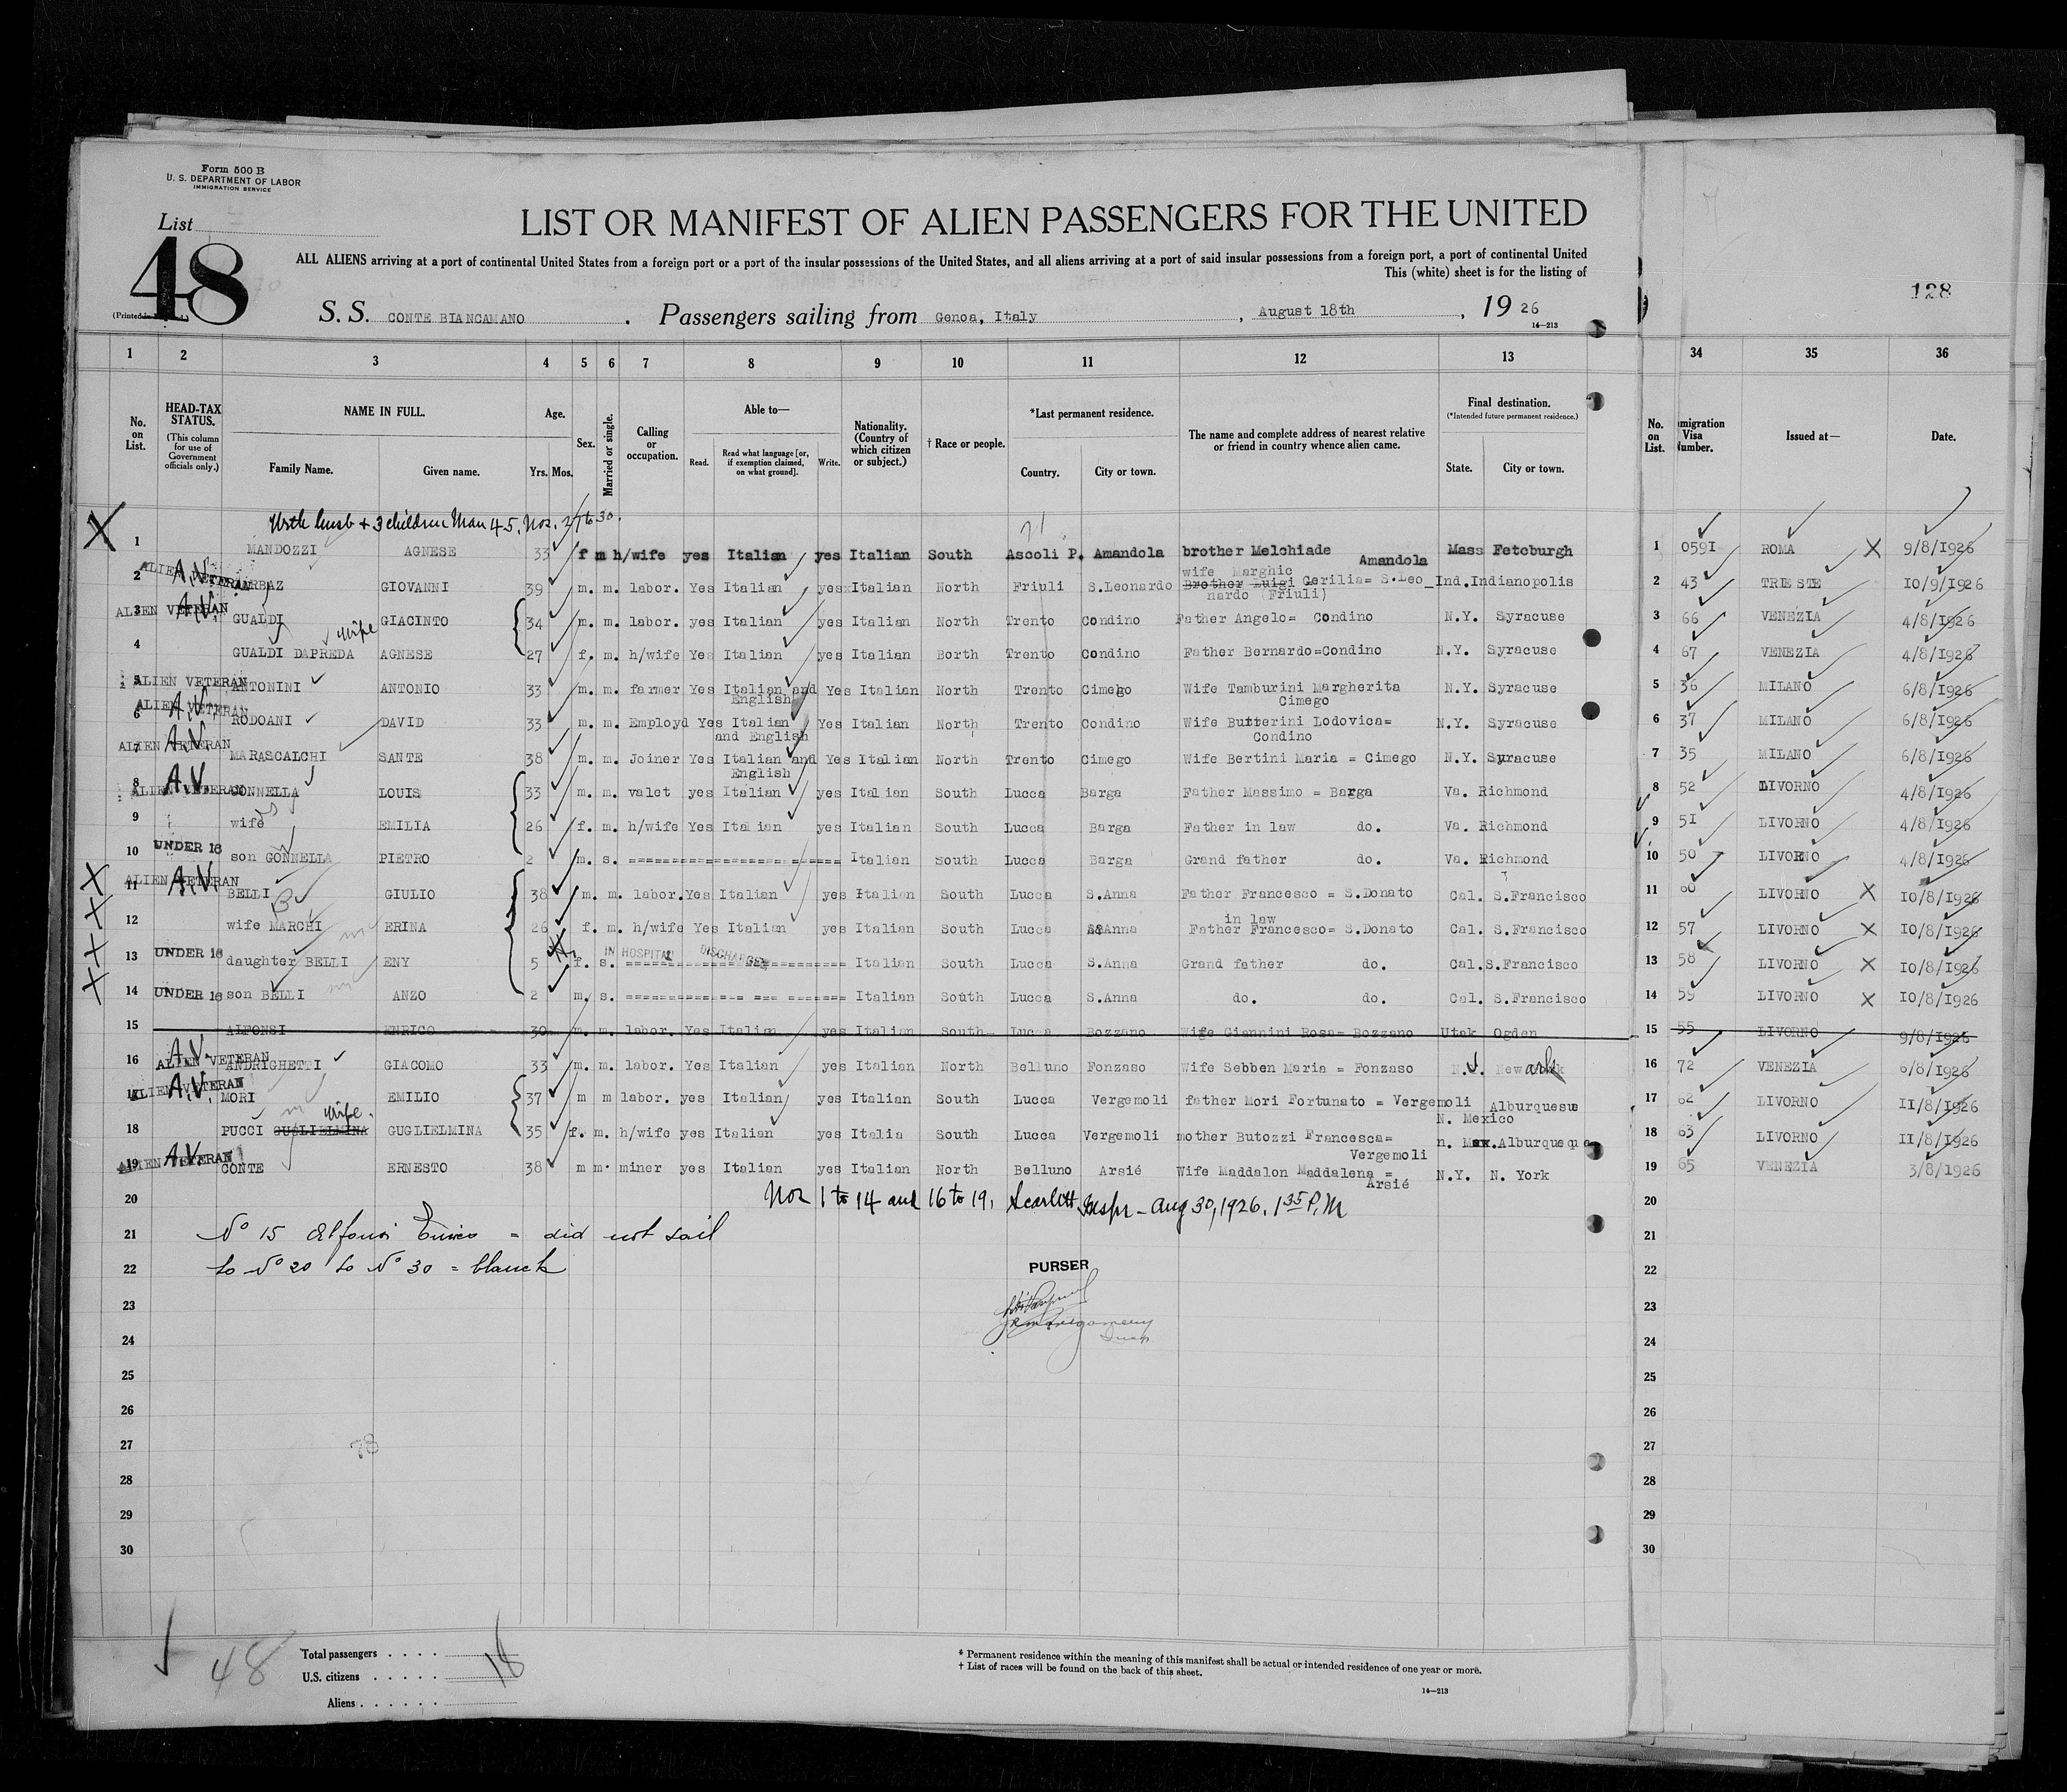 Form 500 B
U. S. DEPARTMENT OF LABOR
IMMIGRATION SERVICE
List
48
LIST OR MANIFEST OF ALIEN PASSENGERS FOR THE UNITED
ALL ALIENS arriving at a port of continental United States from a foreign port or a port of the insular possessions of the United States, and all aliens arriving at a port of said insular possessions from a foreign port, a port of continental United
This (white) sheet is for the listing of
128
S. S. CONTE BIANCAMANO . Passengers sailing from Genoa, Italy , August 18th , 19 26
14—213
1 2 3 4 5 6 7 8 9 10 11 12 13 34 35 36
No. on List. HEAD-TAX STATUS. (This column for use of Government officials only.) NAME IN FULL. Family Name. Given name. Age. Yrs. Mos. Sex. Married or single. Calling or occupation. Able to— Read. Read what language [or, if exemption claimed, on what ground]. Write. Nationality. (Country of which citizen or subject.) † Race or people. *Last permanent residence. Country. City or town. The name and complete address of nearest relative or friend in country whence alien came. Final destination. (*Intended future permanent residence.) State. City or town. No. on List. migration Visa Number. Issued at— Date.
With husb + 3 children Man 45, Nos. 27 to 30.
1 MANDOZZI AGNESE 33 f m h/wife yes Italian yes Italian South Ascoli P. Amandola brother Melchiade Amandola Mass Fetcburgh 1 0591 ROMA X 9/8/1926
2 ALIEN VETERAN A.V. GIOVANNI 39 m. m. labor. Yes Italian yes Italian North Friuli S.Leonardo wife Marghic Brother Luigi Cerilia= S.Leo_nardo (Friuli) Ind. Indianopolis 2 43 TRIESTE 10/9/1926
3 ALIEN VETERAN A.V. GUALDI GIACINTO 34 m. m. labor. yes Italian yes Italian North Trento Condino Father Angelo= Condino N.Y. Syracuse 3 66 VENEZIA 4/8/1926
4 GUALDI DAPREDA wife AGNESE 27 f. m. h/wife Yes Italian yes Italian Borth Trento Condino Father Bernardo=Condino N.Y. Syracuse 4 67 VENEZIA 4/8/1926
5 ALIEN VETERAN ANTONINI ANTONIO 33 m. m. farmer Yes Italian and English Yes Italian North Trento Cimego Wife Tamburini Margherita Cimego N.Y. Syracuse 5 36 MILANO 6/8/1926
6 ALIEN VETERAN A.V. RODOANI DAVID 33 m. m. Employd Yes Italian and English Yes Italian North Trento Condino Wife Butterini Lodovica= Condino N.Y. Syracuse 6 37 MILANO 6/8/1926
7 ALIEN VETERAN A.V. MARASCALCHI SANTE 38 m. m. Joiner Yes Italian and English Yes Italian North Trento Cimego Wife Bertini Maria = Cimego N.Y. Syracuse 7 35 MILANO 6/8/1926
8 ALIEN VETERAN A.V. GONNELLA LOUIS 33 m. m. valet yes Italian yes Italian South Lucca Barga Father Massimo = Barga Va. Richmond 8 52 LIVORNO 4/8/1926
9 wife EMILIA 26 f. m. h/wife Yes Italian yes Italian South Lucca Barga Father in law do. Va. Richmond 9 51 LIVORNO 4/8/1926
10 UNDER 16 son GONNELLA PIETRO 2 m. s. Italian South Lucca Barga Grand father do. Va. Richmond 10 50 LIVORNO 4/8/1926
X 11 ALIEN VETERAN A.V. BELLI GIULIO 38 m. m. labor. Yes Italian yes Italian South Lucca S.Anna Father Francesco = S.Donato Cal. S.Francisco 11 60 LIVORNO X 10/8/1926
X 12 wife MARCHI ERINA 26 f. m. h/wife Yes Italian yes Italian South Lucca S.Anna Father in law Francesco= S.Donato Cal. S.Francisco 12 57 LIVORNO X 10/8/1926
X 13 UNDER 16 daughter BELLI ENY 5 f. s. IN HOSPITAL DISCHARGED Italian South Lucca S.Anna Grand father do. Cal. S.Francisco 13 58 LIVORNO X 10/8/1926
X 14 UNDER 16 son BELLI ANZO 2 m. s. Italian South Lucca S.Anna do. do. Cal. S.Francisco 14 59 LIVORNO X 10/8/1926
15 ALFONSI ENRICO 30 m. m. labor. Yes Italian yes Italian South Lucca Bozzano Wife Giannini Rosa= Bozzano Utak Ogden 15 55 LIVORNO 9/8/1926
16 ALIEN VETERAN A.V. ANDRIGHETTI GIACOMO 33 m. m. labor. Yes Italian yes Italian North Belluno Fonzaso Wife Sebben Maria = Fonzaso N.J. Newark 16 72 VENEZIA 6/8/1926
17 ALIEN VETERAN A.V. MORI EMILIO 37 m m labor. yes Italian yes Italian South Lucca Vergemoli father Mori Fortunato = Vergemoli N. Mexico Alburquesue 17 62 LIVORNO 11/8/1926
18 PUCCI GUGLIELMINA wife. GUGLIELMINA 35 f. m. h/wife yes Italian yes Italia South Lucca Vergemoli mother Butozzi Francesca= Vergemoli n. Mex. Alburqueque 18 63 LIVORNO 11/8/1926
19 ALIEN VETERAN A.V. CONTE ERNESTO 38 m m. miner yes Italian yes Italian North Belluno Arsié Wife Maddalon Maddalena = Arsié N.Y. N. York 19 65 VENEZIA 3/8/1926
20 Nos 1 to 14 and 16 to 19, Scarlett Inspr - Aug 30, 1926, 1 35 P.M 20
21 No 15 Alfonsi Enrico = did not sail 21
22 to No 20 to No 30 = blanck PURSER 22
23 23
24 24
25 25
26 26
27 78 27
28 28
29 29
30 30
48
Total passengers . . . . 18
U.S. citizens . . . . .
Aliens . . . . . .
* Permanent residence within the meaning of this manifest shall be actual or intended residence of one year or more.
† List of races will be found on the back of this sheet.
14—213